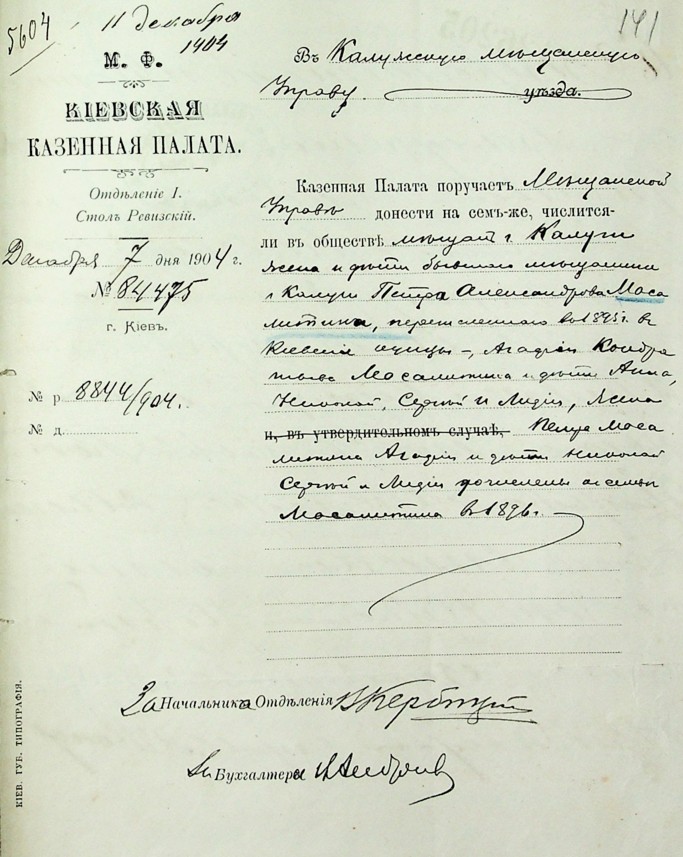 5604
11 декабря
1904
141
М. Ф.
КІЕВСКАЯ
КАЗЕННАЯ ПАЛАТА.
Отдѣленіе I.
Столъ Ревизскій.
Декабря 7 дня 1904 г.
№ 84475
г. Кіевъ.
№ р. 8844/904.
№ д.
Въ Калужскую мѣщанскую
Управу. уѣзда.
Казенная Палата поручаетъ Мѣщанской
Управѣ донести на семъ-же, числится-
ли въ обществѣ мѣщанъ г. Калуги
жена и дѣти бывшаго мѣщанина
г. Калуги Петра Александрова Маса
литина, перечисленнаго въ 1895 г. въ
Кіевскіе купцы –, Агафія Кондра
тьева Масалитина и дѣти Анна,
Николай, Сергѣй и Лидія, жена
и, въ утвердительномъ случаѣ, Петра Маса
литина Агафія и дѣти Николай
Сергѣй и Лидія причислены къ семьѣ
Масалитина въ 1896 г.
За Начальника Отдѣленія
Бухгалтера
КІЕВ. ГУБ. ТИПОГРАФІЯ.